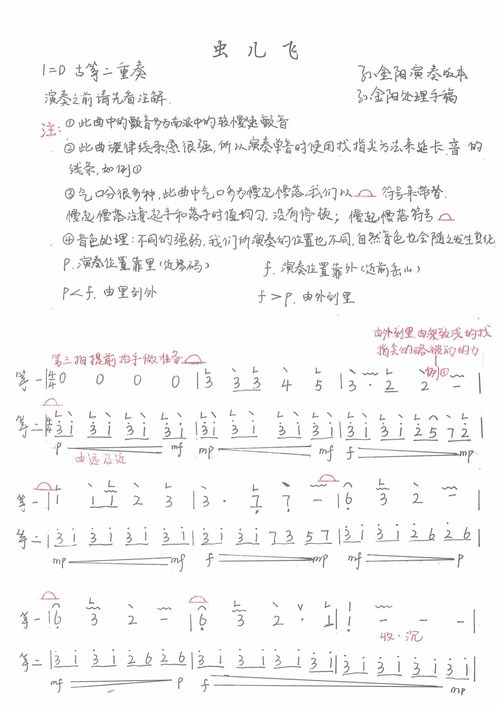 虫儿飞
1=D 古筝二重奏
孙金阳演奏版本
演奏之前请先看注解.
孙金阳处理手稿
注: ①此曲中的颤音多为南派中的较慢速颤音
②此曲旋律线条感很强,所以演奏单音时使用找指尖方法来延长音的
线条,如例①
③气口分很多种,此曲中气口多为慢起慢落,我们以 符号来带替.
慢起慢落注意起手和落手时值均匀,没有停板; 慢起慢落符号
④音色处理:不同的强弱,我们所演奏的位置也不同,自然音色也会随之发生变化
P. 演奏位置靠里(近琴码)
f. 演奏位置靠外(近前岳山)
P<f. 由里到外
f>P. 由外到里
由外到里,由深到浅的找
指尖的略被动的力
例①
第三拍提前为手做准备
筝一 4/4 0 0 0 0 | 3 3 3 4 5 | 3 · 2 2 - |
筝二 4/4 3 1 3 1 3 1 3 1 | 3 1 3 1 3 1 3 1 | 3 1 3 1 2 5 7 2 |
P mf mp mf f mp
由远及近
筝一 | 1 1 1 2 3 | 3 · 7 7 - | 6 3 2 - |
筝二 | 3 1 3 1 3 1 3 1 | 3 1 3 1 7 3 5 7 | 3 1 3 1 2 6 2 6 |
mp mf f mp mf P
筝一 | 6 3 2 - | 6 3 2 · 1 | 1 - - - |
收·沉
筝二 | 3 1 3 1 2 6 2 6 | 3 1 3 1 3 1 3 1 | 3 1 3 1 3 1 3 1 |
mf P f mp